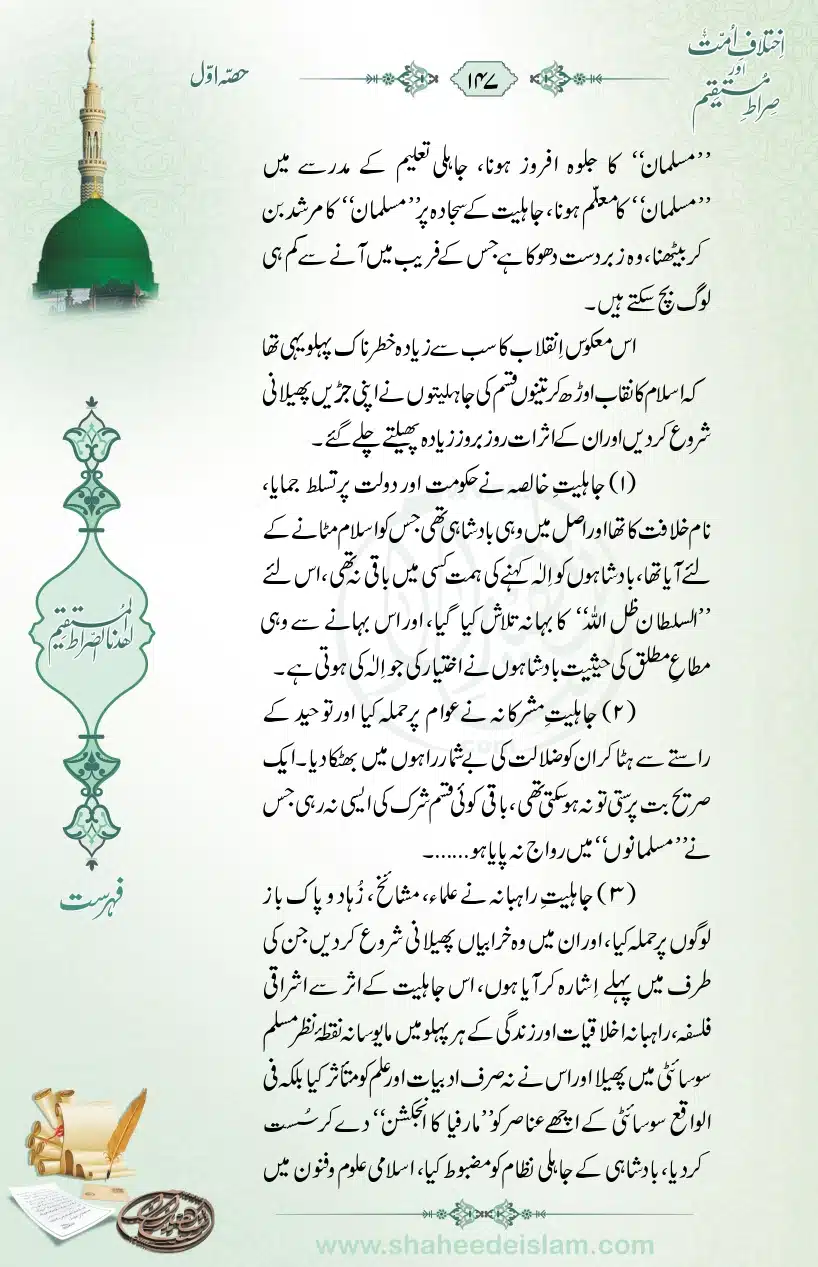 اِختلافِ اُمّت
اور
صراطِ مستقیم
۱۴۷
حصّہ اوّل
’’مسلمان‘‘ کا جلوہ افروز ہونا، جاہلی تعلیم کے مدرسے میں
’’مسلمان‘‘ کا معلّم ہونا، جاہلیت کے سجادہ پر ’’مسلمان‘‘ کا مرشد بن
کر بیٹھنا، وہ زبردست دھوکا ہے جس کے فریب میں آنے سے کم ہی
لوگ بچ سکتے ہیں۔
اس معکوس اِنقلاب کا سب سے زیادہ خطرناک پہلو یہی تھا
کہ اسلام کا نقاب اوڑھ کر تینوں قسم کی جاہلیتوں نے اپنی جڑیں پھیلانی
شروع کردیں اور ان کے اثرات روز بروز زیادہ پھیلتے چلے گئے۔
(۱) جاہلیتِ خالصہ نے حکومت اور دولت پر تسلط جمایا،
نام خلافت کا تھا اور اصل میں وہی بادشاہی تھی جس کو اسلام مٹانے کے
لئے آیا تھا، بادشاہوں کو اِلٰہ کہنے کی ہمت کسی میں باقی نہ تھی، اس لئے
’’السلطان ظل اللہ‘‘ کا بہانہ تلاش کیا گیا، اور اس بہانے سے وہی
مطاعِ مطلق کی حیثیت بادشاہوں نے اختیار کی جو اِلٰہ کی ہوتی ہے۔
(۲) جاہلیتِ مشرکانہ نے عوام پر حملہ کیا اور توحید کے
راستے سے ہٹاکر ان کو ضلالت کی بے شمار راہوں میں بھٹکادیا۔ ایک
صریح بت پرستی تو نہ ہوسکتی تھی، باقی کوئی قسم شرک کی ایسی نہ رہی جس
نے ’’مسلمانوں‘‘ میں رواج نہ پایا ہو......۔
(۳) جاہلیتِ راہبانہ نے علماء، مشائخ، زُہاد و پاک باز
لوگوں پر حملہ کیا، اور ان میں وہ خرابیاں پھیلانی شروع کردیں جن کی
طرف میں پہلے اِشارہ کر آیا ہوں، اس جاہلیت کے اثر سے اشراقی
فلسفہ، راہبانہ اخلاقیات اور زندگی کے ہر پہلو میں مایوسانہ نقطۂ نظر مسلم
سوسائٹی میں پھیلا اور اس نے نہ صرف ادبیات اور علم کو متأثر کیا بلکہ فی
الواقع سوسائٹی کے اچھے عناصر کو ’’مارفیا کا انجکشن‘‘ دے کر سُست
کردیا، بادشاہی کے جاہلی نظام کو مضبوط کیا، اسلامی علوم و فنون میں
اهدنا الصراط المستقيم
فہرست
www.shaheedeislam.com